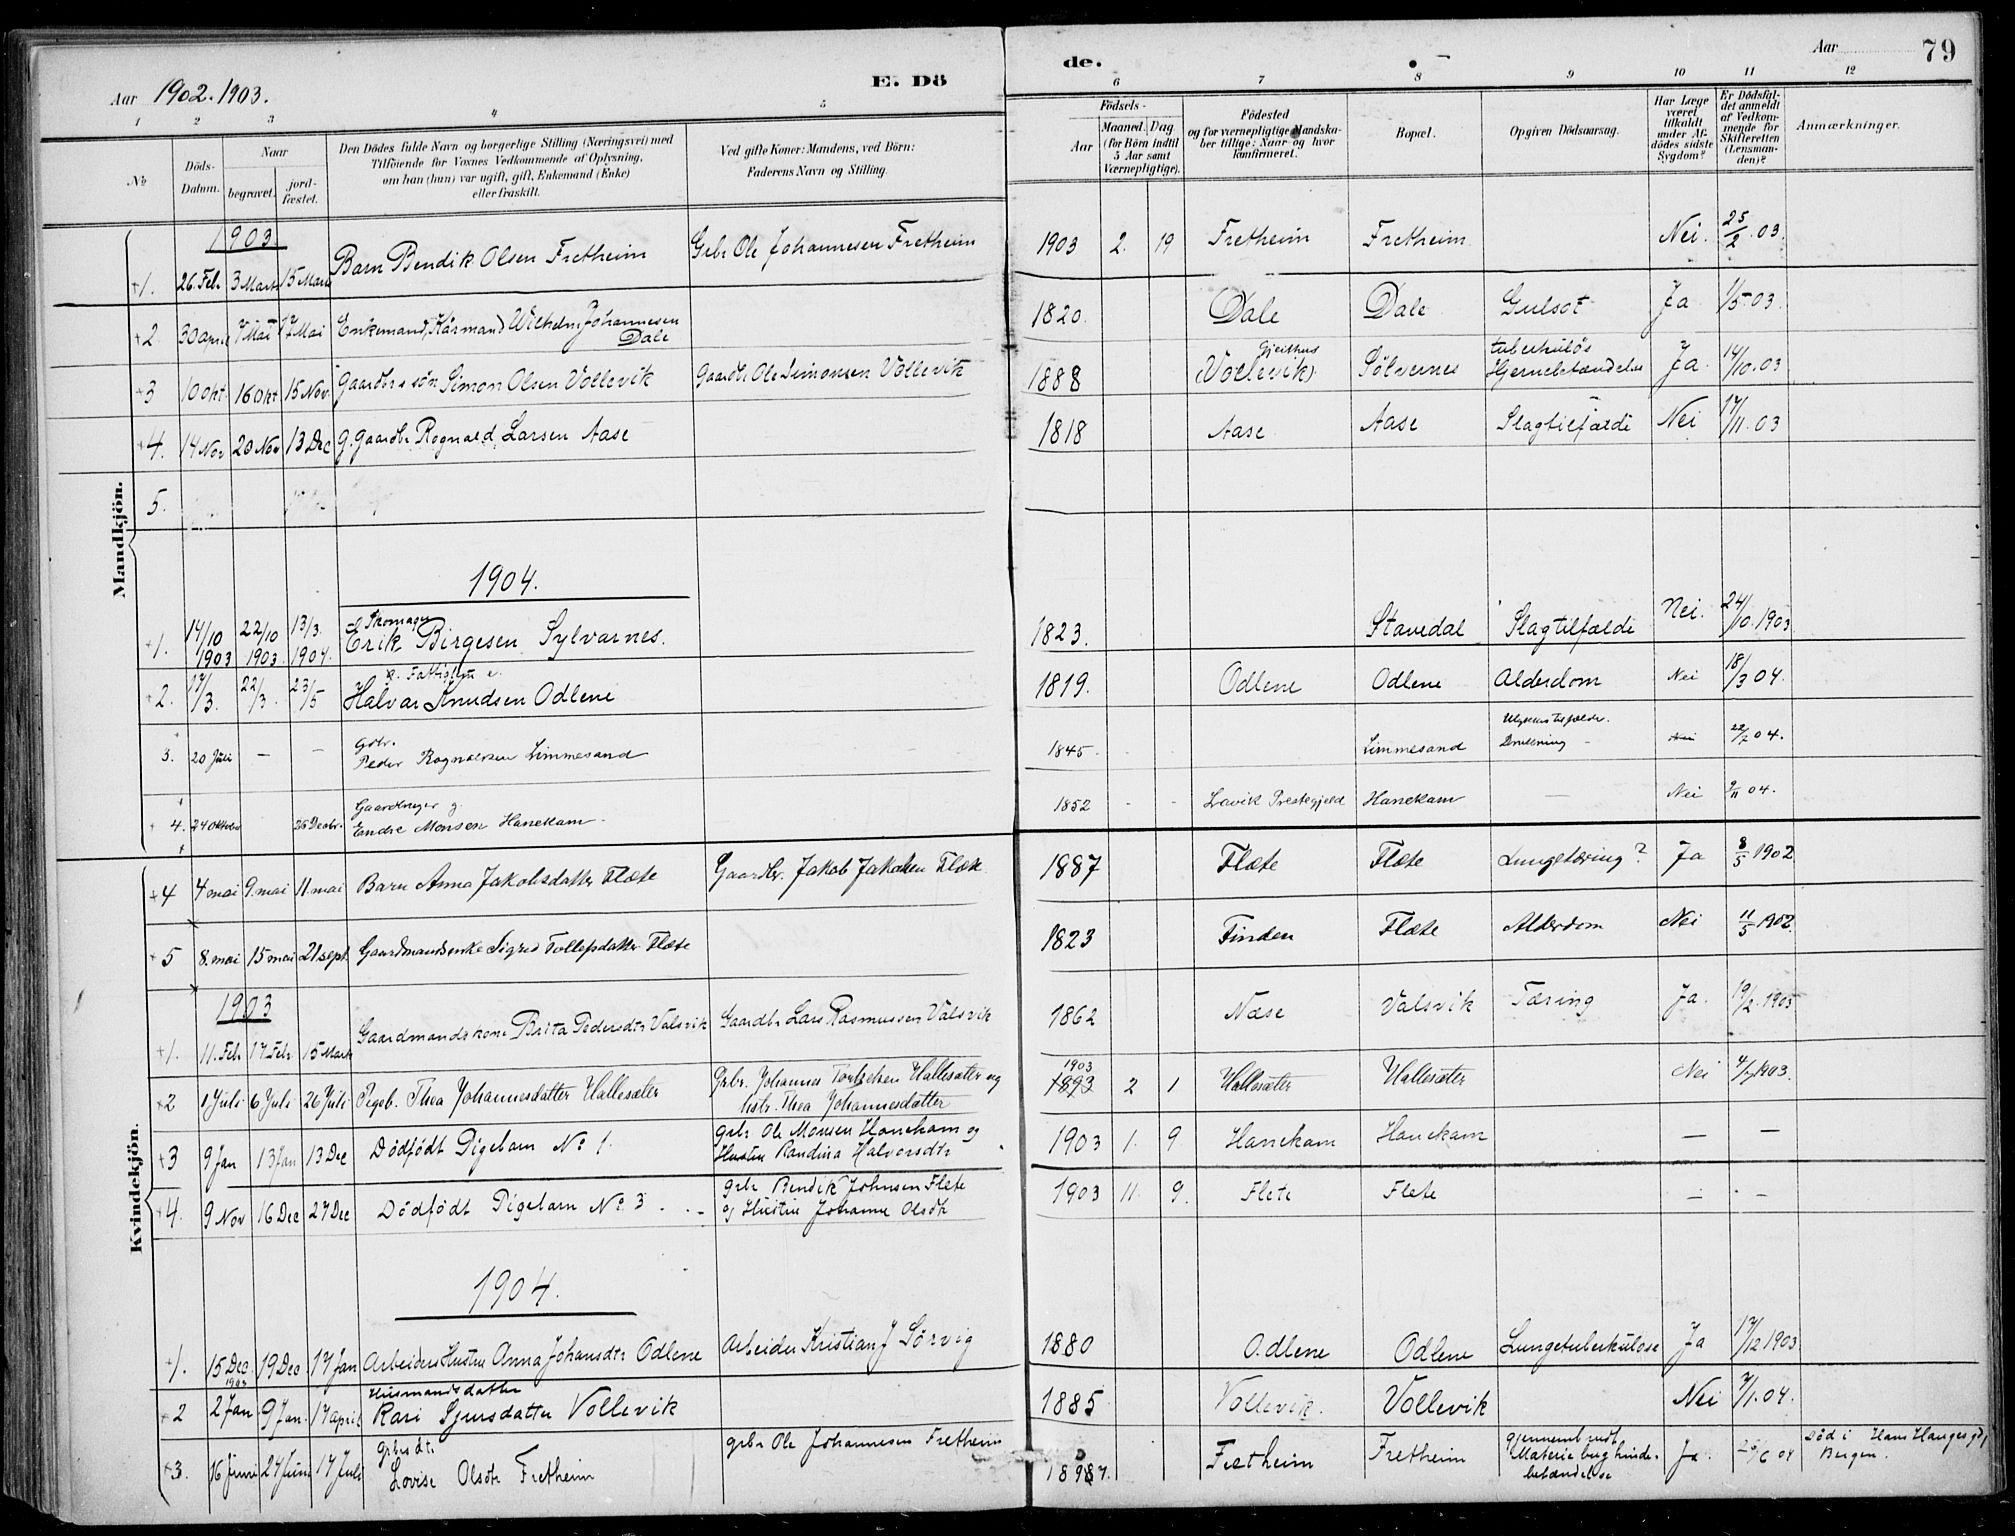 Aar 1902. 1903.
E. Dö
de.
Aar
79
1 2 3 4 5 6 7 8 9 10 11 12
No
Döds-Datum.
Naar
begravet. jord-fæstet.
Den Dödes fulde Navn og borgerlige Stilling (Næringsvei) med
Tilföiende for Voxnes Vedkommende af Oplysning,
om han (hun) var ugift, gift, Enkemand (Enke)
eller fraskilt.
Ved gifte Koner: Mandens, ved Börn:
Faderens Navn og Stilling.
Födsels-
Aar
Maaned. Dag
(for Börn indtil
5 Aar samt
Værnepligtige).
Födested
og for værnepligtige Mandska-
ber tillige: Naar og hvor
konfirmeret.
Bopæl.
Opgiven Dödsaarsag.
Har Læge
været
tilkaldt
under Af-
dödes sidste
Sygdom?
Er Dödsfal-
det anmeldt
af Vedkom-
mende for
Skifteretten
(Lensman-
den)?
Anmærkninger.
Mandkjön.
1903
+1. 26. Feb 3 Marts 15 Marts Barn Bendik Olsen Fretheim Grbr Ole Johannesen Fretheim 1903 2. 19 Fretheim Fretheim Nei. 25/2. 03.
+2. 30 april 7 Mai 17 Mai Enkemand, Kårmand Wilhelm Johannesen Dale 1820. Dale Dale Gulsot Ja 1/5 03.
+3 10 okt. 16 okt 15 Nov. Gaardbrs søn Simon Olsen Vollevik Gaardbr Ole Simonsen Vollevik 1888 Gjeithus (Vollevik) Sølvernes tuberkuløs Hjernebetændelse Ja 14/10. 03
+4. 14 Nov 20 Nov 13 Dec G. Gaardbr Rognald Larsen Aase 1818 Aase Aase Slagtilfælde Nei 17/11. 03
5.
1904.
+1. 14/10 1903 22/10 1903. 13/3. 1904. Skomager Erik Birgesen Sylvarnes. 1823. Stavedal Slagtilfælde Nei. 24/10. 1903
+2. 17/3. 22/3. 23/5 Halvar Knudsen Odlene 1819. Odlene Odlene Alderdom Nei 18/3 04.
3. 20 Juli — — Gbr. Peder Rognaldsen Limmesand 1845. Limmesand Drukning — Nei 22/7 04.
+ 4. 24 Oktober 26 Decbr. Gaardbruger g. Endre Monsen Hanekam. 1852 Lavik Prestegjeld Hanekam — Nei 9/11 04.
Kvindekjön.
+4 4 mai 9. mai 11. mai Barn Anna Jakobsdatter Flæte Gaardbr. Jakob Jakobsen Flæte 1887 Flæte Flæte Lungetæring? Ja 8/5 1902
+5 8. mai 15 mai 21 sept. Gaardmandsenke Sigrid Tollefsdatter Flæte 1823 Finden Flæte Alderdom Nei 11/5 1902.
1903
+1. 11. Feb 17 Feb. 15 Marts Gaardmandskone Brita Pedersdtr Valsvik Gaardbr Lars Rasmussen Valsvik 1862 Næse Valsvik Tæring Ja. 19/2. 1903
+2 1 Juli 6 Juli 26 Juli Pigeb. Thea Johannesdatter Hallesæter Grbr. Johannes Torkelsen Hallesæter og hstr. Thea Johannesdatter 1903 1893 2 1 Hallesæter Hallesæter Nei 4/7 1903.
+3 9 Jan 13 Jan 13 Dec Dödfödt Pigebarn No 1. grbr Ole Monsen Hanekam og Hustru Randina Halvorsdtr 1903 1. 9 Hanekam Hanekam — —
+4. 9 Nov 16 Dec 27 Dec Dödfödt Pigebarn No. 3 grbr Bendik Johnsen Flete og Hustru Johanne Olsdtr 1903 11. 9. Flete Flete — —
1904.
+1. 15 Dec. 1903 19 Dec 17 Jan Arbeiders Hustru Anna Johansdtr Odlene Arbeider Kristian J Sörvig 1880 Odlene Odlene Lungetuberkulose Ja 17/12 1903
+2 2 Jan 9 Jan. 17 april Husmandsdatter Kari Sjursdatter Vollevik 1885 Vollevik. Vollevik Nei 7/1. 04.
+3. 16 Juni 24 Juni 17 Juli grbrs dtr. Lovise Olsdtr Fretheim grbr Ole Johannesen Fretheim Fretheim Fretheim Ja. Död i Hans Hauges gd, Bergen.